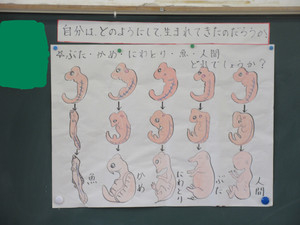 自分は、どのようにして、生まれてきたのだろうか
☆ぶた・かめ・にわとり・魚・人間
どれでしょうか?
魚
かめ
にわとり
ぶた
人間